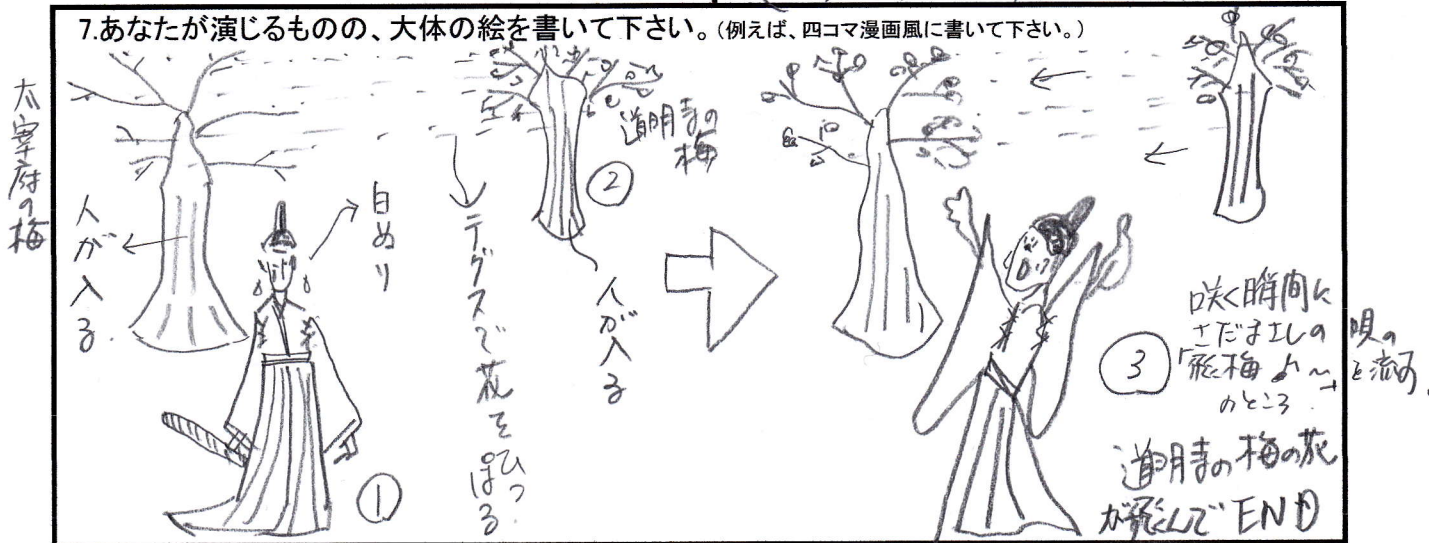 7.あなたが演じるものの、大体の絵を書いて下さい。(例えば、四コマ漫画風に書いて下さい。)
太宰府の梅
人が入る.
白ぬり
①
テグスで花をひっぱる
道明寺の梅
②
人が入る
③
咲く瞬間に
さだまさしの唄の
「飛梅よ〜」を流す。
のところ
道明寺の梅の花
が飛んでEND